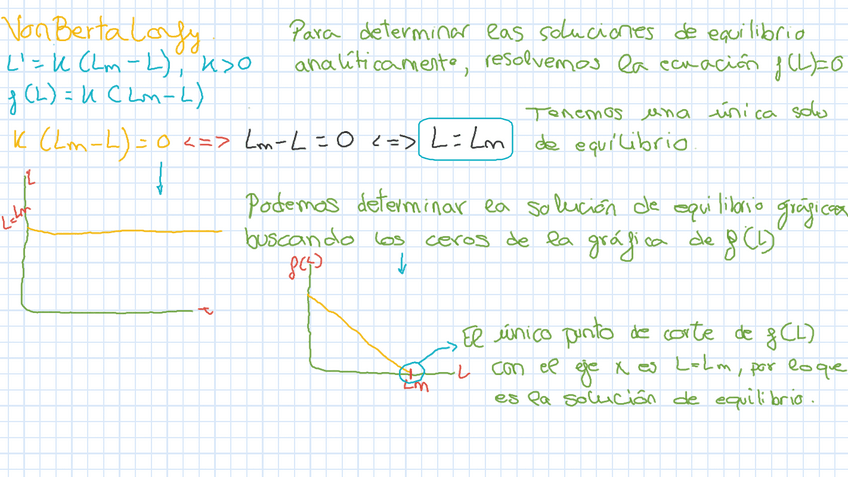 Von Bertalanfy
L' = K (Lm - L), K > 0
f(L) = K (Lm - L)
Para determinar las soluciones de equilibrio
analíticamente, resolvemos la ecuación f(L)=0
K (Lm - L) = 0 <=> Lm - L = 0 <=> L = Lm
Tenemos una única solu
de equilibrio.
L
L=Lm
t
Podemos determinar la solución de equilibrio gráficam
buscando los ceros de la gráfica de f(L)
f(L)
L
Lm
El único punto de corte de f(L)
con el eje x es L=Lm, por lo que
es la solución de equilibrio.